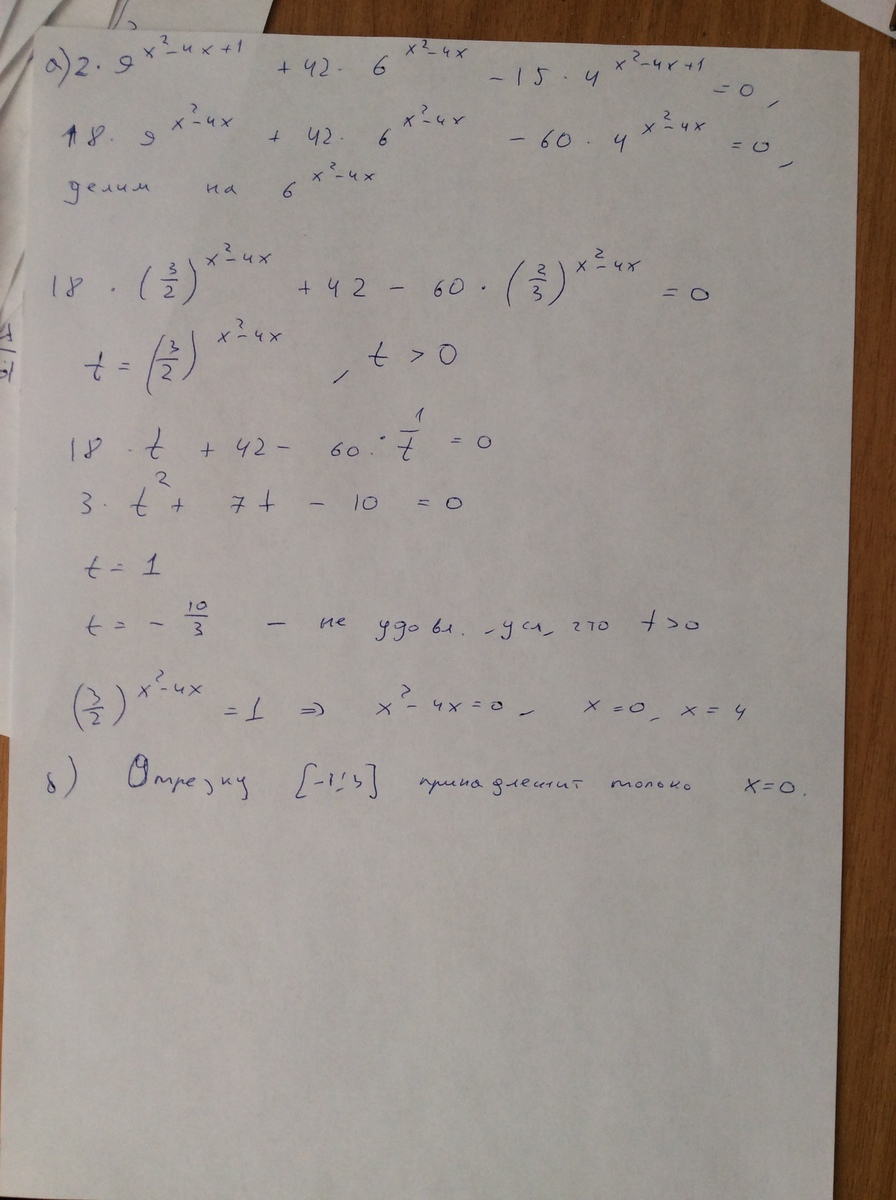 а) 2 · 9^{x²-4x+1} + 42 · 6^{x²-4x} - 15 · 4^{x²-4x+1} = 0,
18 · 9^{x²-4x} + 42 · 6^{x²-4x} - 60 · 4^{x²-4x} = 0,
делим на 6^{x²-4x}
18 · (3/2)^{x²-4x} + 42 - 60 · (2/3)^{x²-4x} = 0
t = (3/2)^{x²-4x}, t > 0
18 · t + 42 - 60 · 1/t = 0
3 · t² + 7t - 10 = 0
t = 1
t = - 10/3 - не удовл. усл, что t > 0
(3/2)^{x²-4x} = 1 ⇒ x² - 4x = 0, x = 0, x = 4
б) Отрезку [-1; 3] принадлежит только x = 0.